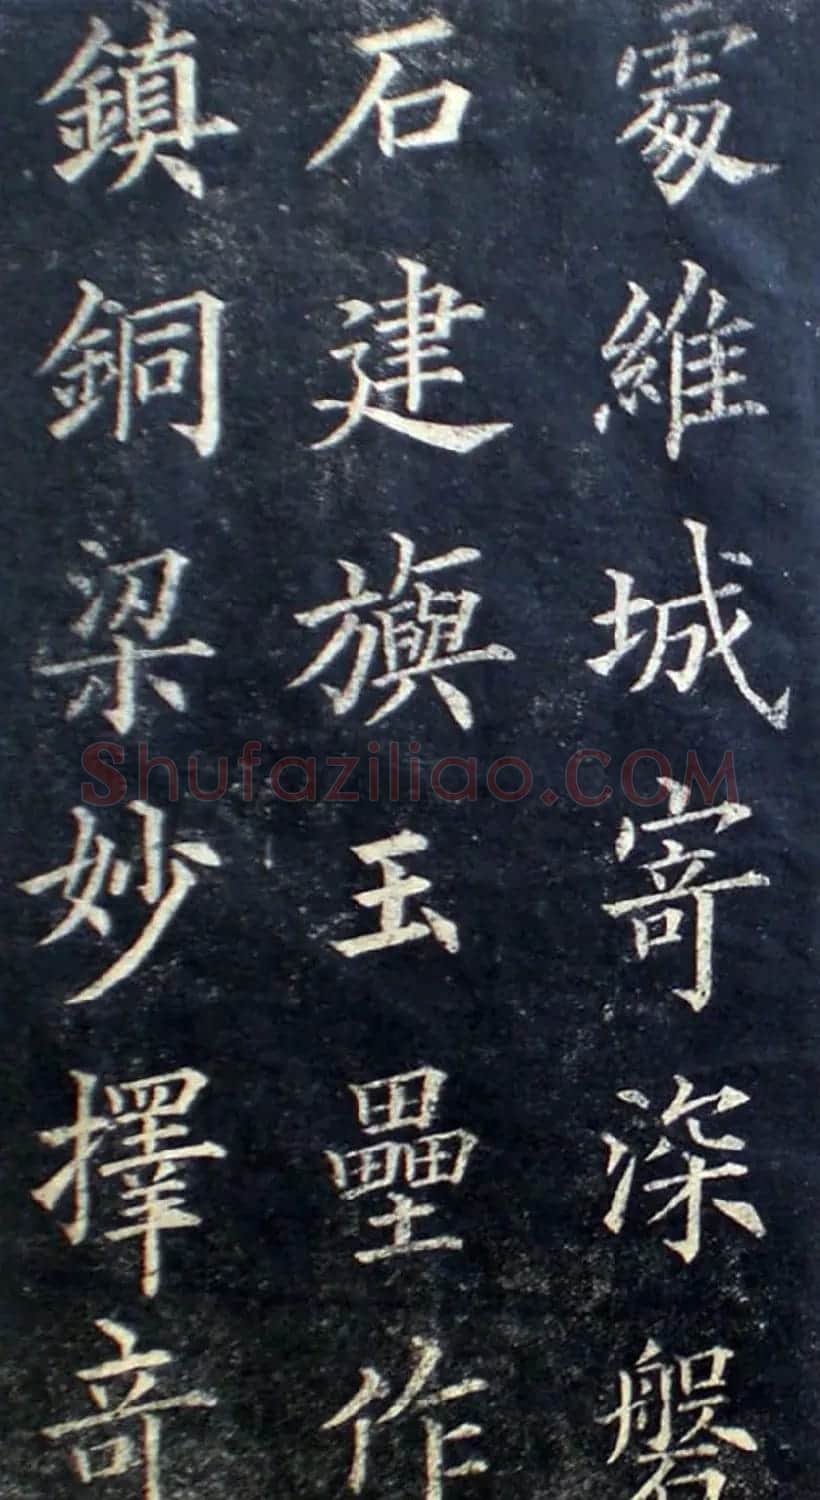 處維城寄深磐
石建旟玉壘作
鎮銅梁妙擇奇
Shufaziliao.COM